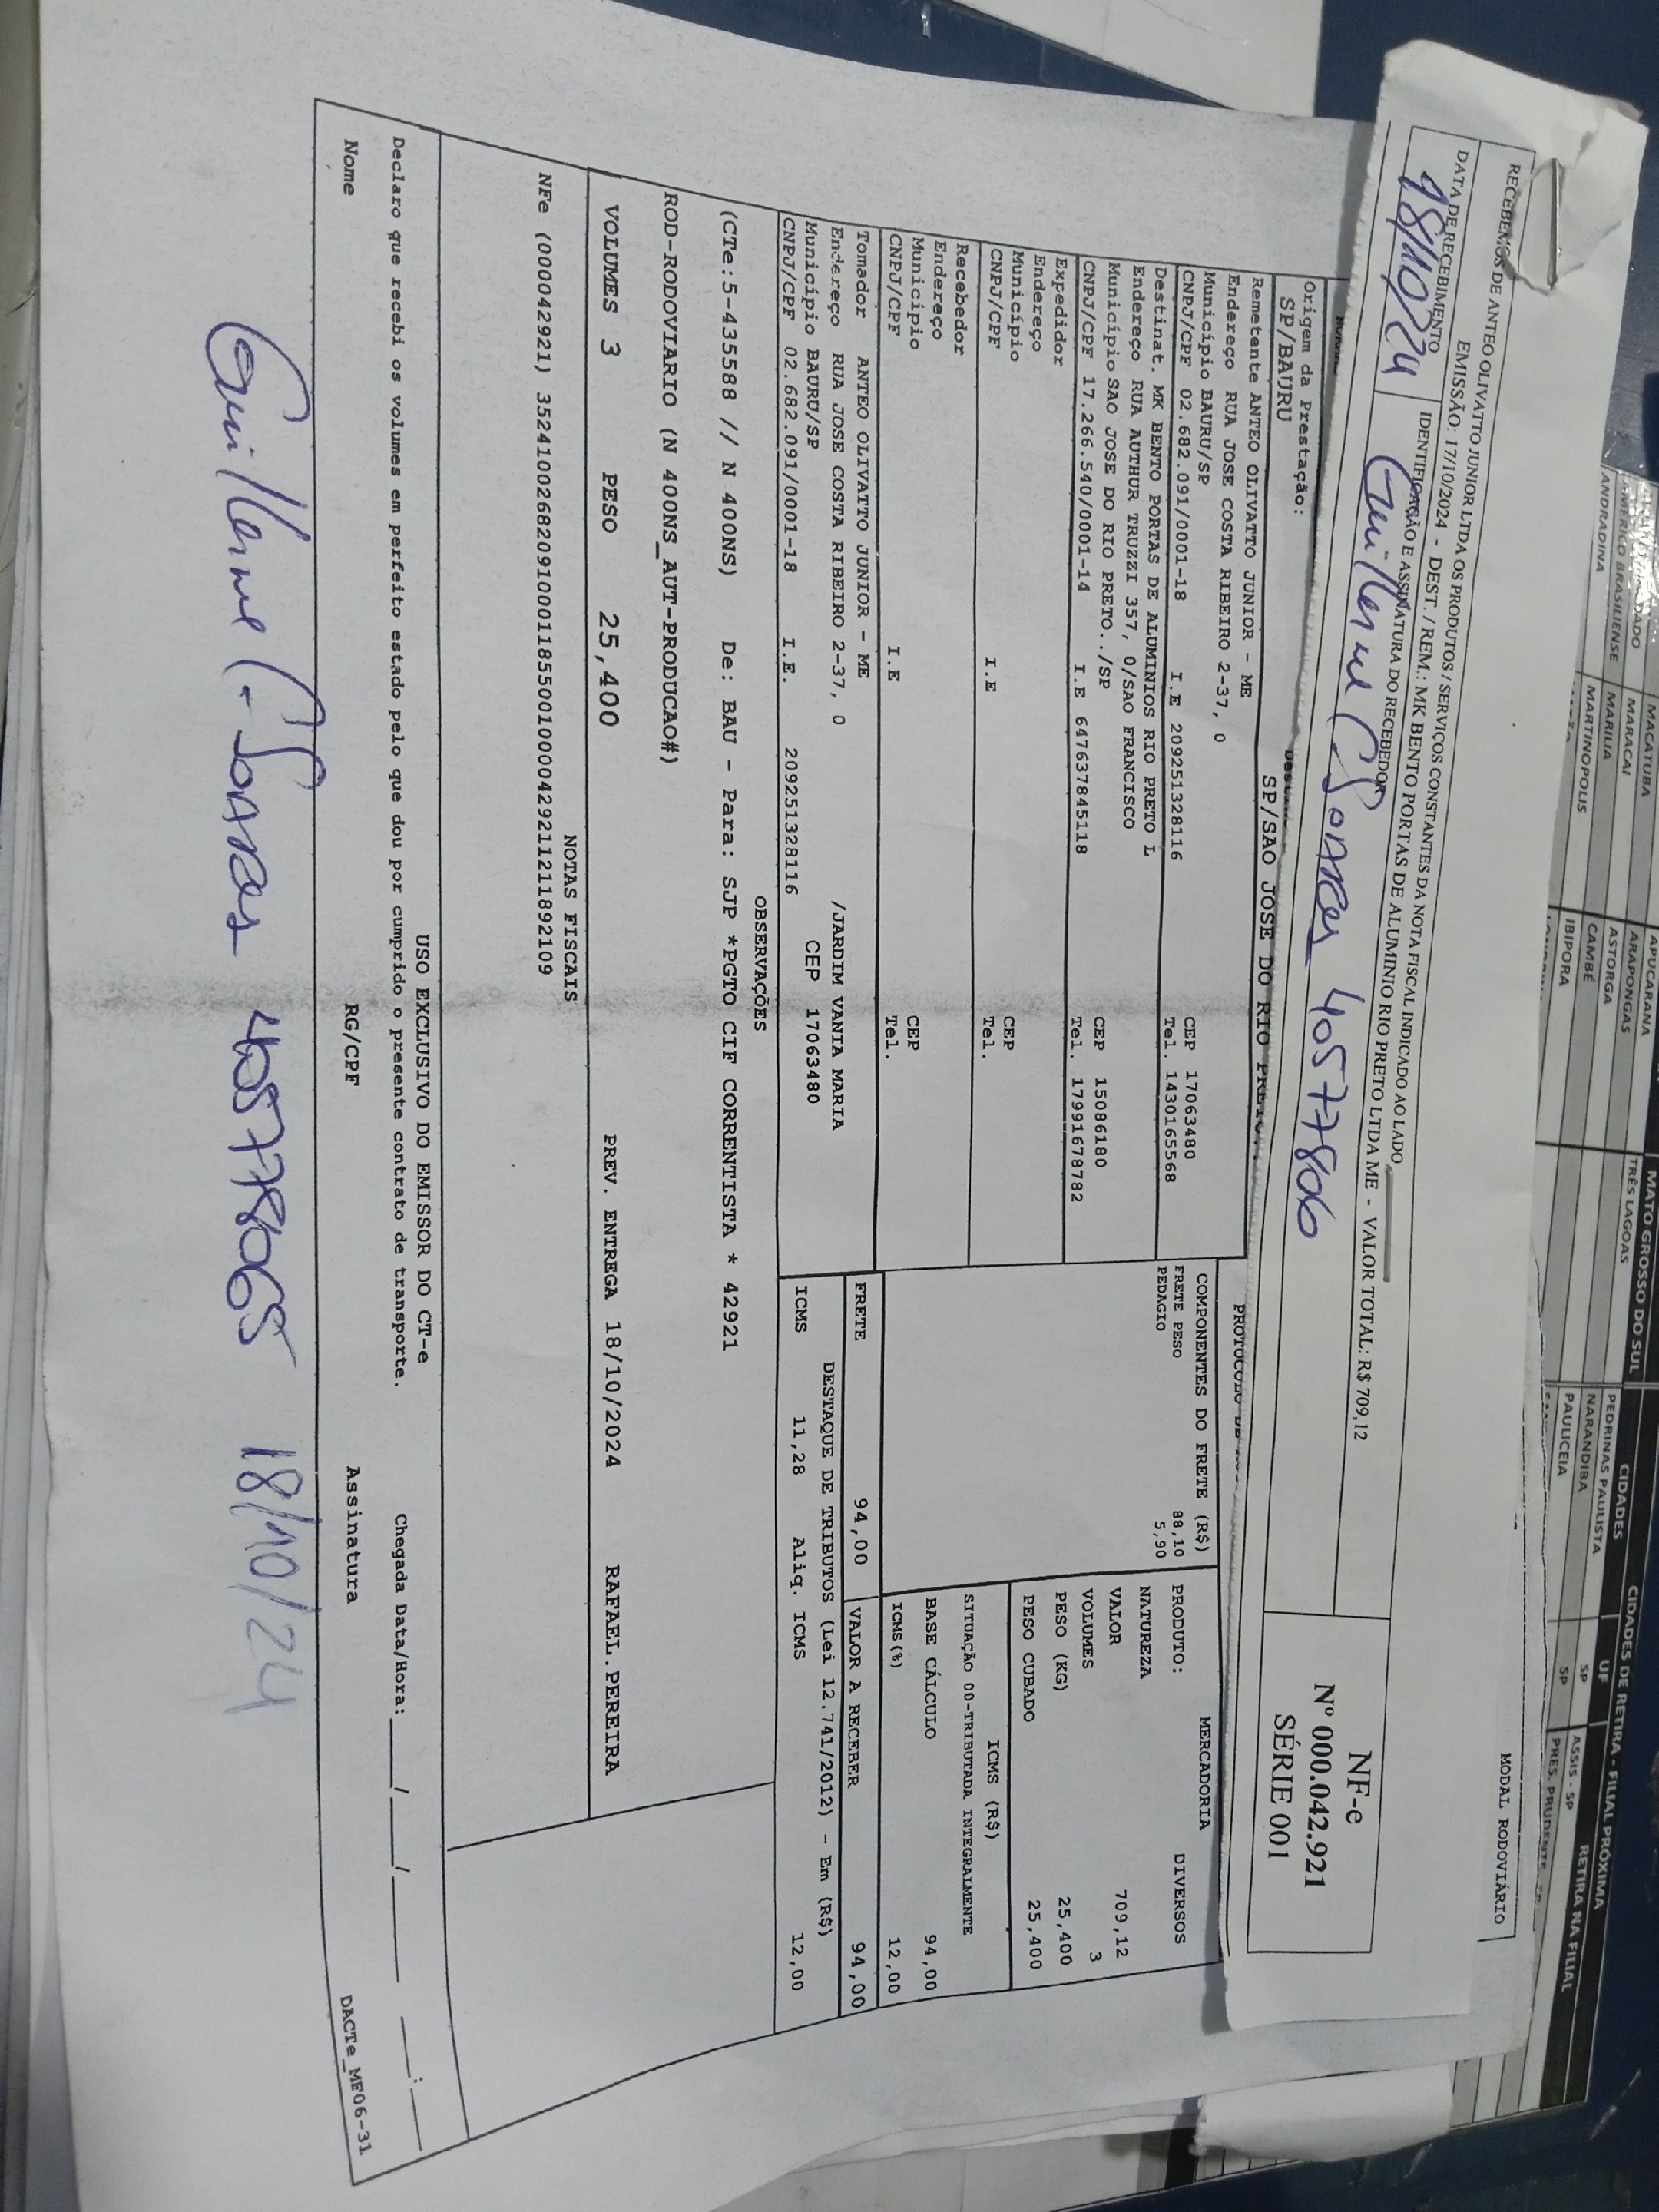 MACATUBA
MARACAI
MARILIA
MARTINOPOLIS
AMERICO BRASILIENSE
ANDRADINA
APUCARANA
ARAPONGAS
ASTORGA
CAMBÉ
IBIPORA
MATO GROSSO DO SUL
TRÊS LAGOAS
CIDADES
PEDRINAS PAULISTA
NARANDIBA
PAULICEIA
CIDADES DE RETIRA - FILIAL PRÓXIMA
UF
SP
SP
RETIRA NA FILIAL
ASSIS - SP
PRES. PRUDENTE - SP
MODAL RODOVIÁRIO
RECEBEMOS DE ANTEO OLIVATTO JUNIOR LTDA OS PRODUTOS / SERVIÇOS CONSTANTES DA NOTA FISCAL INDICADO AO LADO
EMISSÃO: 17/10/2024 - DEST. / REM.: MK BENTO PORTAS DE ALUMINIO RIO PRETO LTDA ME - VALOR TOTAL: R$ 709,12
DATA DE RECEBIMENTO
IDENTIFICAÇÃO E ASSINATURA DO RECEBEDOR
18/10/24
Guilherme C. Soares 40577806
NF-e
Nº 000.042.921
SÉRIE 001
Origem da Prestação:
SP/BAURU
SP/SAO JOSE DO RIO PRETO..
Remetente ANTEO OLIVATTO JUNIOR - ME
Endereço RUA JOSE COSTA RIBEIRO 2-37, 0
Município BAURU/SP CEP 17063480
CNPJ/CPF 02.682.091/0001-18 I.E 209251328116 Tel. 1430165568
Destinat. MK BENTO PORTAS DE ALUMINIOS RIO PRETO L
Endereço RUA AUTHUR TRUZZI 357, 0/SAO FRANCISCO
Município SAO JOSE DO RIO PRETO../SP CEP 15086180
CNPJ/CPF 17.266.540/0001-14 I.E 647637845118 Tel. 17991678782
Expedidor
Endereço
Município CEP
CNPJ/CPF I.E Tel.
Recebedor
Endereço
Município CEP
CNPJ/CPF I.E Tel.
Tomador ANTEO OLIVATTO JUNIOR - ME
Endereço RUA JOSE COSTA RIBEIRO 2-37, 0 /JARDIM VANIA MARIA
Município BAURU/SP CEP 17063480
CNPJ/CPF 02.682.091/0001-18 I.E. 209251328116
COMPONENTES DO FRETE (R$)
FRETE PESO 88,10
PEDAGIO 5,90
MERCADORIA
PRODUTO: DIVERSOS
NATUREZA
VALOR 709,12
VOLUMES 3
PESO (KG) 25,400
PESO CUBADO 25,400
ICMS (R$)
SITUAÇÃO 00-TRIBUTADA INTEGRALMENTE
BASE CÁLCULO 94,00
ICMS (%) 12,00
FRETE 94,00 VALOR A RECEBER 94,00
DESTAQUE DE TRIBUTOS (Lei 12.741/2012) - Em (R$)
ICMS 11,28 Aliq. ICMS 12,00
OBSERVAÇÕES
(CTe:5-435588 // N 400NS) De: BAU - Para: SJP *PGTO CIF CORRENTISTA * 42921
ROD-RODOVIARIO (N 400NS_AUT-PRODUCAO#)
VOLUMES 3 PESO 25,400 PREV. ENTREGA 18/10/2024 RAFAEL.PEREIRA
NOTAS FISCAIS
NFe (000042921) 35241002682091000118550010000429211211892109
USO EXCLUSIVO DO EMISSOR DO CT-e
Declaro que recebi os volumes em perfeito estado pelo que dou por cumprido o presente contrato de transporte. Chegada Data/Hora:____/____/______ ____:____
Nome RG/CPF Assinatura DACTe_MF06-31
Guilherme C. Soares 405778065 18/10/24